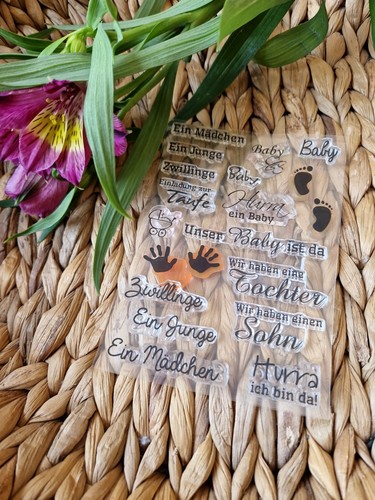 Ein Mädchen
Ein Junge
Zwillinge
Einladung zur
Taufe
Baby
Baby
Baby
Hurra
ein Baby
Unser Baby ist da
Zwillinge
Ein Junge
Ein Mädchen
Wir haben eine
Tochter
Wir haben einen
Sohn
Hurra
ich bin da!